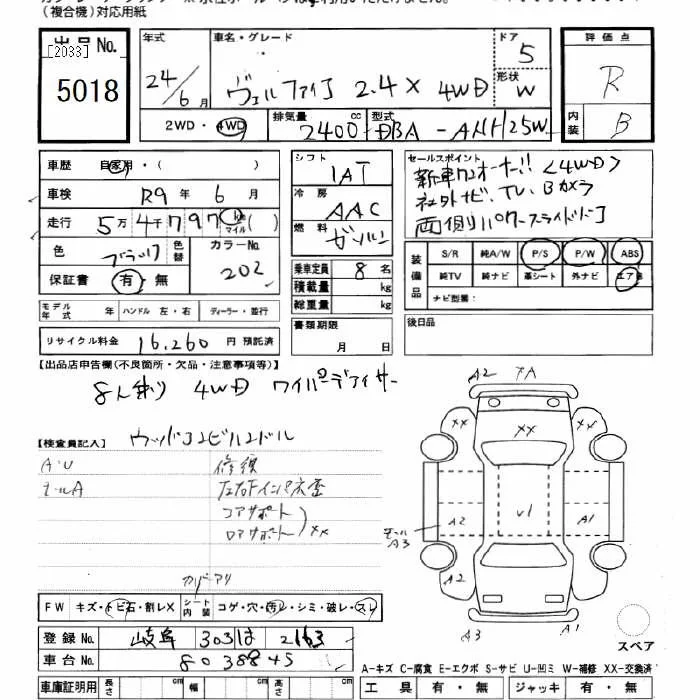 (複合機)対応用紙
出品No.
[2033]
5018
年式
24/6月
車名・グレード
ヴェルファイア 2.4X 4WD
ドア
5
形状
W
評価点
R
内装
B
2WD・4WD
排気量
2400
cc
型式
DBA-ANH25W
車歴 自家用・( )
車検 R9年 6月
走行 5万4千797km マイル( )
色 ブラック 色替
カラーNo. 202
保証書 有・無
シフト
IAT
冷房
AAC
燃料
ガソリン
乗車定員 8名
積載量 kg
総重量 kg
書類期限
月 日
セールスポイント
新車ワンオーナー!!<4WD>
社外ナビ、TV、Bカメラ
両側リパワースライドドア
装備品
S/R 純A/W P/S P/W ABS
純TV 純ナビ 革シート 外ナビ エア
ナビ型番:
後日品
モデル年式 年 ハンドル 左・右 ディーラー・並行
リサイクル料金 16,260円 預託済
【出品店申告欄(不良箇所・欠品・注意事項等)】
8人乗り 4WD ワイパーデアイサー
【検査員記入】 ウッドコンビハンドル
A・U
モールA
修復
左右Fインパネ歪
コアサポート
ロアサポート
XX
A2 XA
XX XX XX
A2 V1 A1
モールA3
A2
A3 A1
スペア
カバーアリ
FW キズ・トビ石・割レX
シート内装 コゲ・穴・汚レ・シミ・破レ・スレ
登録No. 岐阜 303 は 2163
車台No. 8038845
車庫証明用 長さ cm 幅 cm 高さ cm
A-キズ C-腐食 E-エクボ S-サビ U-凹ミ W-補修 XX-交換済
工具 有・無 ジャッキ 有・無